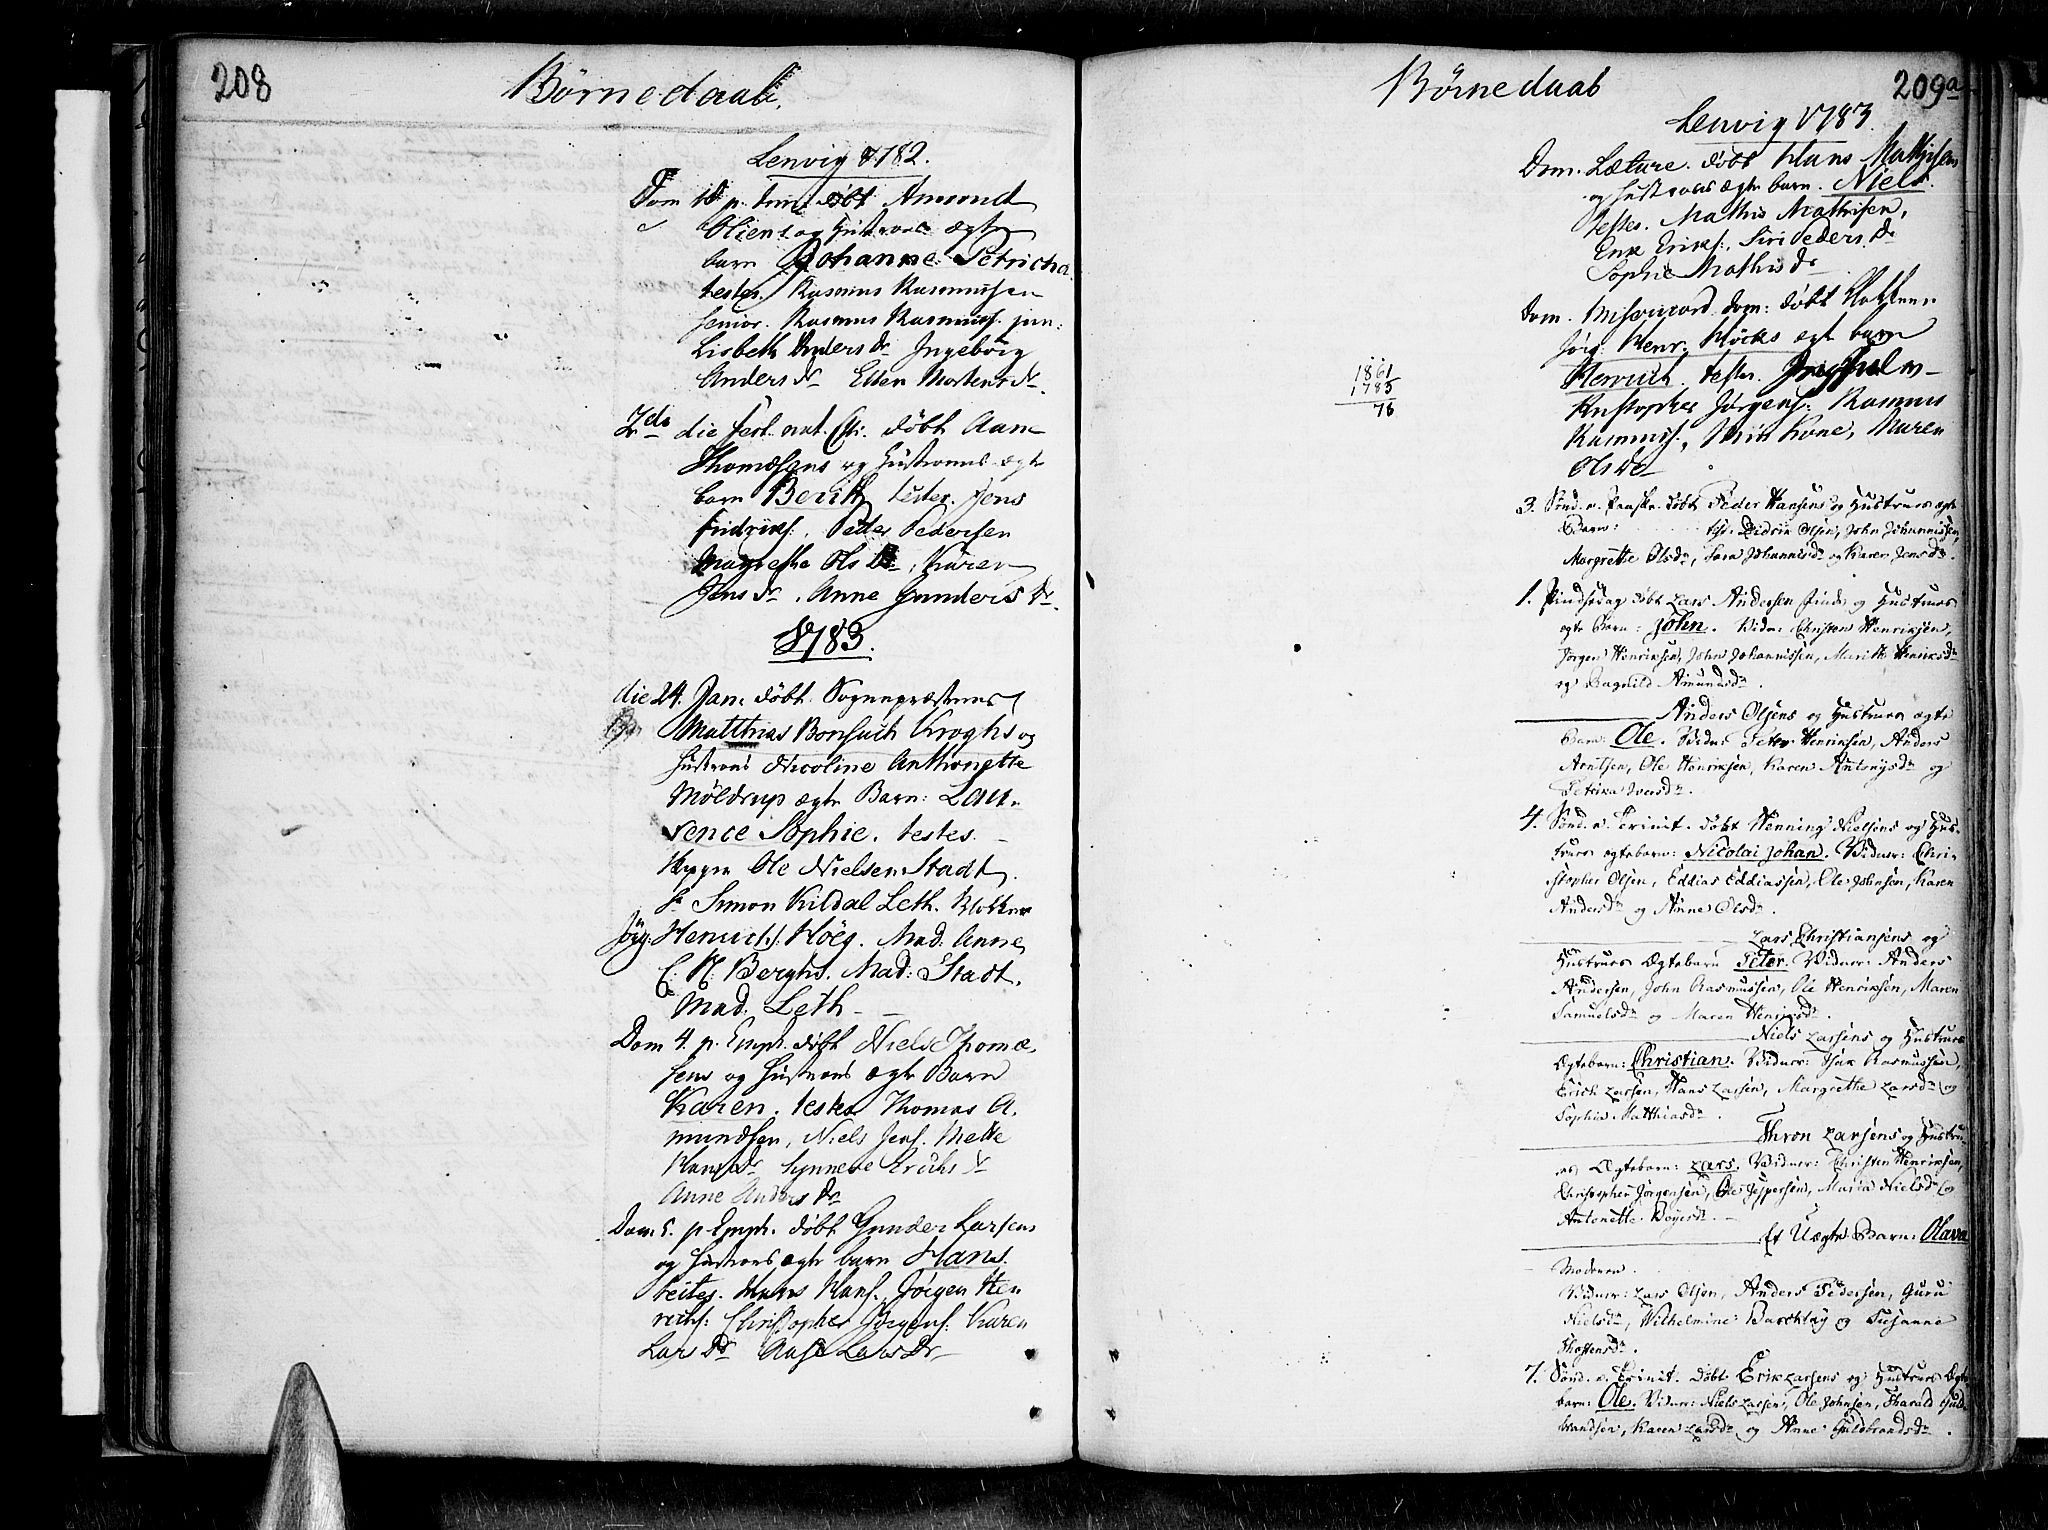 208
Børnedaab.
Lenvig 1782.
Dom p. trin. døbt Amund
Oliens og Hustroes ægte
barn Johanne Petricha
testes. Rasmus Rasmussen
senior. Rasmus Rasmuss. jun:
Lisbeth Anders Dr Ingebörg
Anders dr Ellen Mortens dr.
2de die fest. nat. Chr. døbt Aam
Thomæsens og Hustroes ægte
barn Berith testes. Jens
Fridrichs. Peder Pedersen
Magrethe Ols Dr, Karen
Jens dr. Anne Gunders Dr.
1783.
die 24. Jan: døbt Sognepræstens
Matthias Bonsach Kroghs og
Hustroes Nicoline Anthonette
Møldrup ægte Barn: Lau-
rence Sophie. testes.
Ole Nielsen Stadt
Sr Simon Kildal Leth. Klokker
Jörg: Henrich: Höeg. Mad: Anne
C: M: Berghs. Mad: Stadt.
Mad. Leth
Dom 4. p. Epiph. døbt Niels Thomæ-
sens og Hustroes ægte Barn
Karen. testes Thomas A-
mundsen, Niels Jens. Mette
Hans Dr Synneve Erichs dr
Anne Anders Dr
Dom. 5. p Epiph. døbt Gunder Larsens
og Hustroes ægte barn Hans.
testes. Hans Hans. Jörgen Hen
richs: Christopher Jörgens: Karen
Lars Dr Aase Lars Dr
Børnedaab
209a
Lenvig 1783.
Dom. Læture. døbt Hans Mathisens
og Hustroes ægte barn. Niels.
testes. Mathis Mathisen,
Eriks. Siri Peders Dr
Sophie Mathis Dr
Dom. Misericord. dom: døbt Klokker
Jörg: Henr. Höeks egt barn
Henrich. testes.
Kristopher Jörgens: Rasmus
Rasmuss., Kone, Maren
Ols Dr
1861
1783
78
3. Sönd. e. Paaske døbt Peder Hansens og Hustrues ægte
Barn: test. Didrik Olsen, John Johannissen,
Margrethe Olsdr, Sara Johannisdr og Karen Jensdr.
1. Pindsedag døbt Lars Andersen Finds og Hustrues
egte Barn: John. Vidn: Christen Henriksen,
Jörgen Henriksen, John Johannissen, Marith Henriksdr
og Ragnild Amundsdr.
Anders Olsens og Hustrues ægte
Barn: Ole. Vidn: Peter Henriksen, Anders
Arntsen, Ole Henriksen, Karen Antonysdr og
Petrika Iversdr.
4. Sönd. e. Trinit. døbt Henning Nielsens og Hus-
trues ægtebarn: Nicolai Johan. Vidner: Chri-
stopher Olsen, Eddias Eddiassen, Ole Johnsen, Karen
Andersdr og Anne Olsdr.
Lars Christiansens og
Hustrues Ægtebarn Peter. Vidner: Anders
Andersen, John Rasmussen, Ole Henriksen, Maren
Samuelsdr og Maren Henriksdr.
Niels Larsens og Hustrues
Ægtebarn: Christian. Vidner: Isak Rasmussen,
Erich Larsen, Hans Larsen, Margrethe Larsdr og
Sophia Matthiasdr.
Thron Larsens og Hustru-
es Ægtebarn: Lars. Vidner: Christen Henriksen,
Christopher Jörgensen, Ole Jeppesen, Maria Nielsdr og
Antonette Beyersdr.
Et Uægte Barn: Olava
Moderen.
Vidner: Lars Olsen, Anders Pedersen, Guru
Nielsdr, Wilhelmine Barchtay og Susanne
Thostensdr.
7. Sönd. e. Trinit. døbt Erik Larsens og Hustrues Ægte
barn: Ole. Vidner: Niels Larsen, Ole Johnsen, Tharald Guld-
brandsen, Karen Larsdr og Anne Guldbrandsdr.